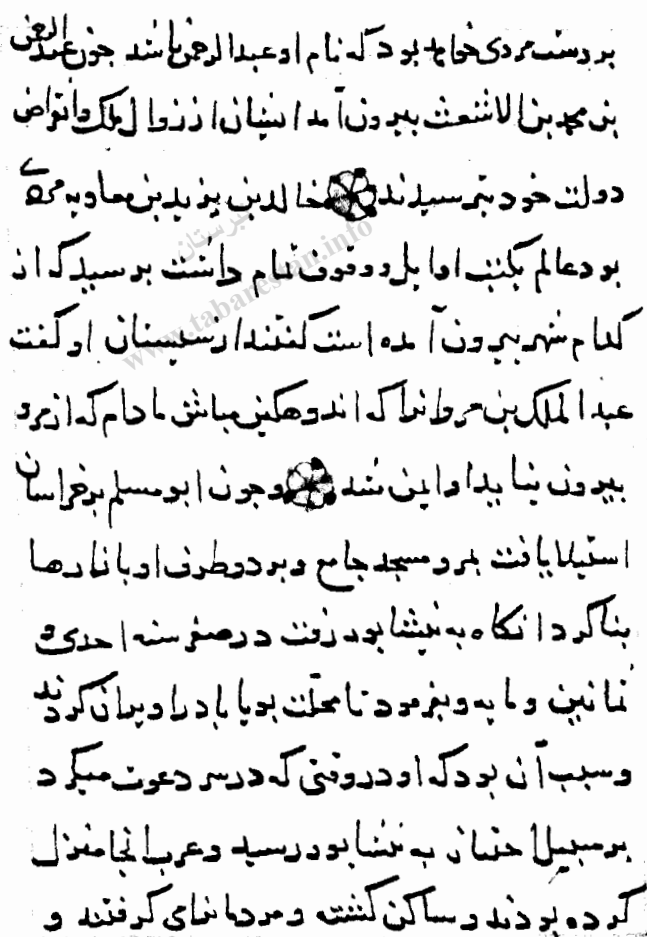 بر دست مردی خواهد بود که نام او عبدالرحمن باشد جون عبدالرحمن
بن محمد بن الاشعث بیرون آمد ایشان از زوال ملک وانقراض
دولت خود بترسیدند خالد بن یزید بن معاویه مردی
بود عالم بکتب اوایل و وقوف تمام داشت برسید که از
کدام شهر بیرون آمده است کفتند از سیستان او کفت
عبدالملک بن مروانرا که اندوهکین مباش مادام که از مرو
بیرون نیاید او ایمن شد وجون ابومسلم بر خراسان
استیلا یافت بمرو مسجد جامع و برد و طرف او بازارها
بنا کرد آنکاه به نیشابور رفت در صفر سنه احدی و
ثمانین و مایه و بفرمود تا محلت بویاباد را ویران کردند
و سبب آن بود که او در وقتی که در سر دعوت میکرد
بر سبیل اجتیاز به نیشابور رسید و عرب آنجا منزل
کرده بودند و ساکن کشته و مردمانمای کرفتند و
www.tabarestan.info
تبرستان